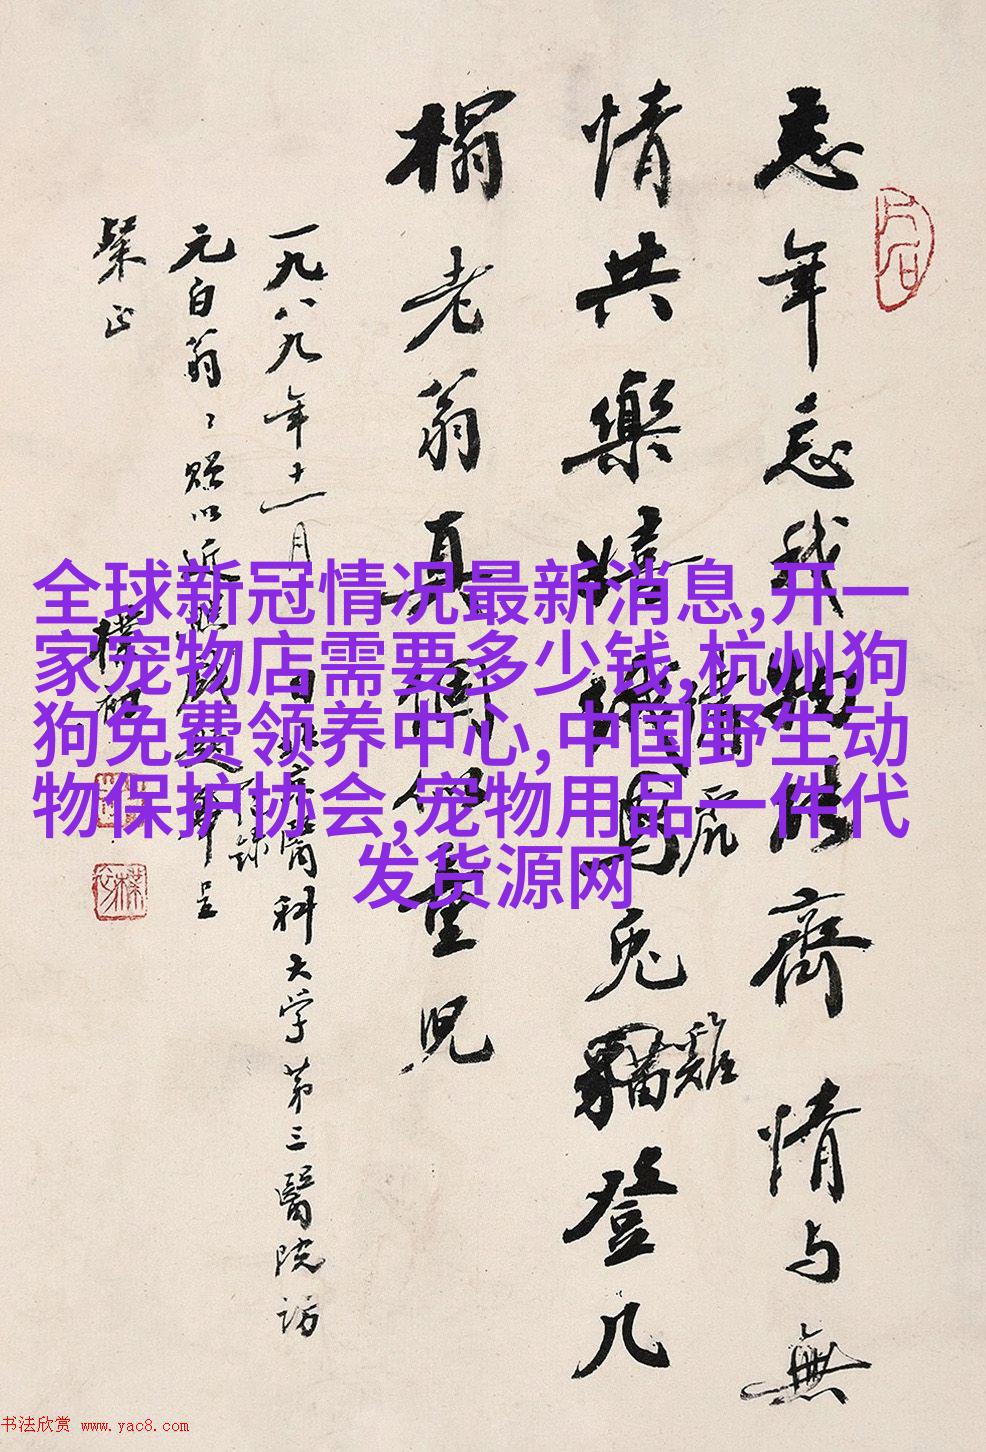 忘年忘我物能齊情与無
情共樂嬉
兎貓雞登几
榻老翁真个似童児
一九八九年十一月
日北京醫科大学第三醫院訪
元白翁〻赠以近照
呈
粲正
全球新冠情况最新消息,开一
家宠物店需要多少钱,杭州狗
狗免费领养中心,中国野生动
物保护协会,宠物用品一件代
发货源网
书法欣赏 www.yac8.com